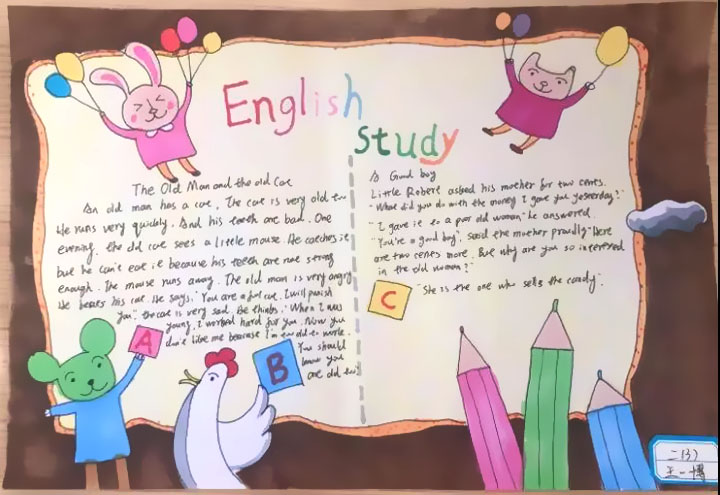 English
study
The Old Man and the old Cat
An old man has a cat. The cat is very old too
He runs very quickly. And his teeth are bad. One
evening. the old cat sees a little mouse. He catches it
but he can't eat it because his teeth are not strong
enough. The mouse runs away. The old man is very angry
He beats his cat. He says: "You are a fool cat. I will punish
you". the cat is very sad. He thinks: "When I was
young, I worked hard for you. Now you
don't like me because I'm too old to work.
You should
know you
are old too
A Good boy
Little Robert asked his mother for two cents.
"What did you do with the money I gave you yesterday?"
"I gave it to a poor old woman" he answered.
"You're a good boy". said the mother proudly "Here
are two cents more. But why are you so interested
in the old woman?"
"She is the one who sells the candy".
A
B
C
二(3)
王一博